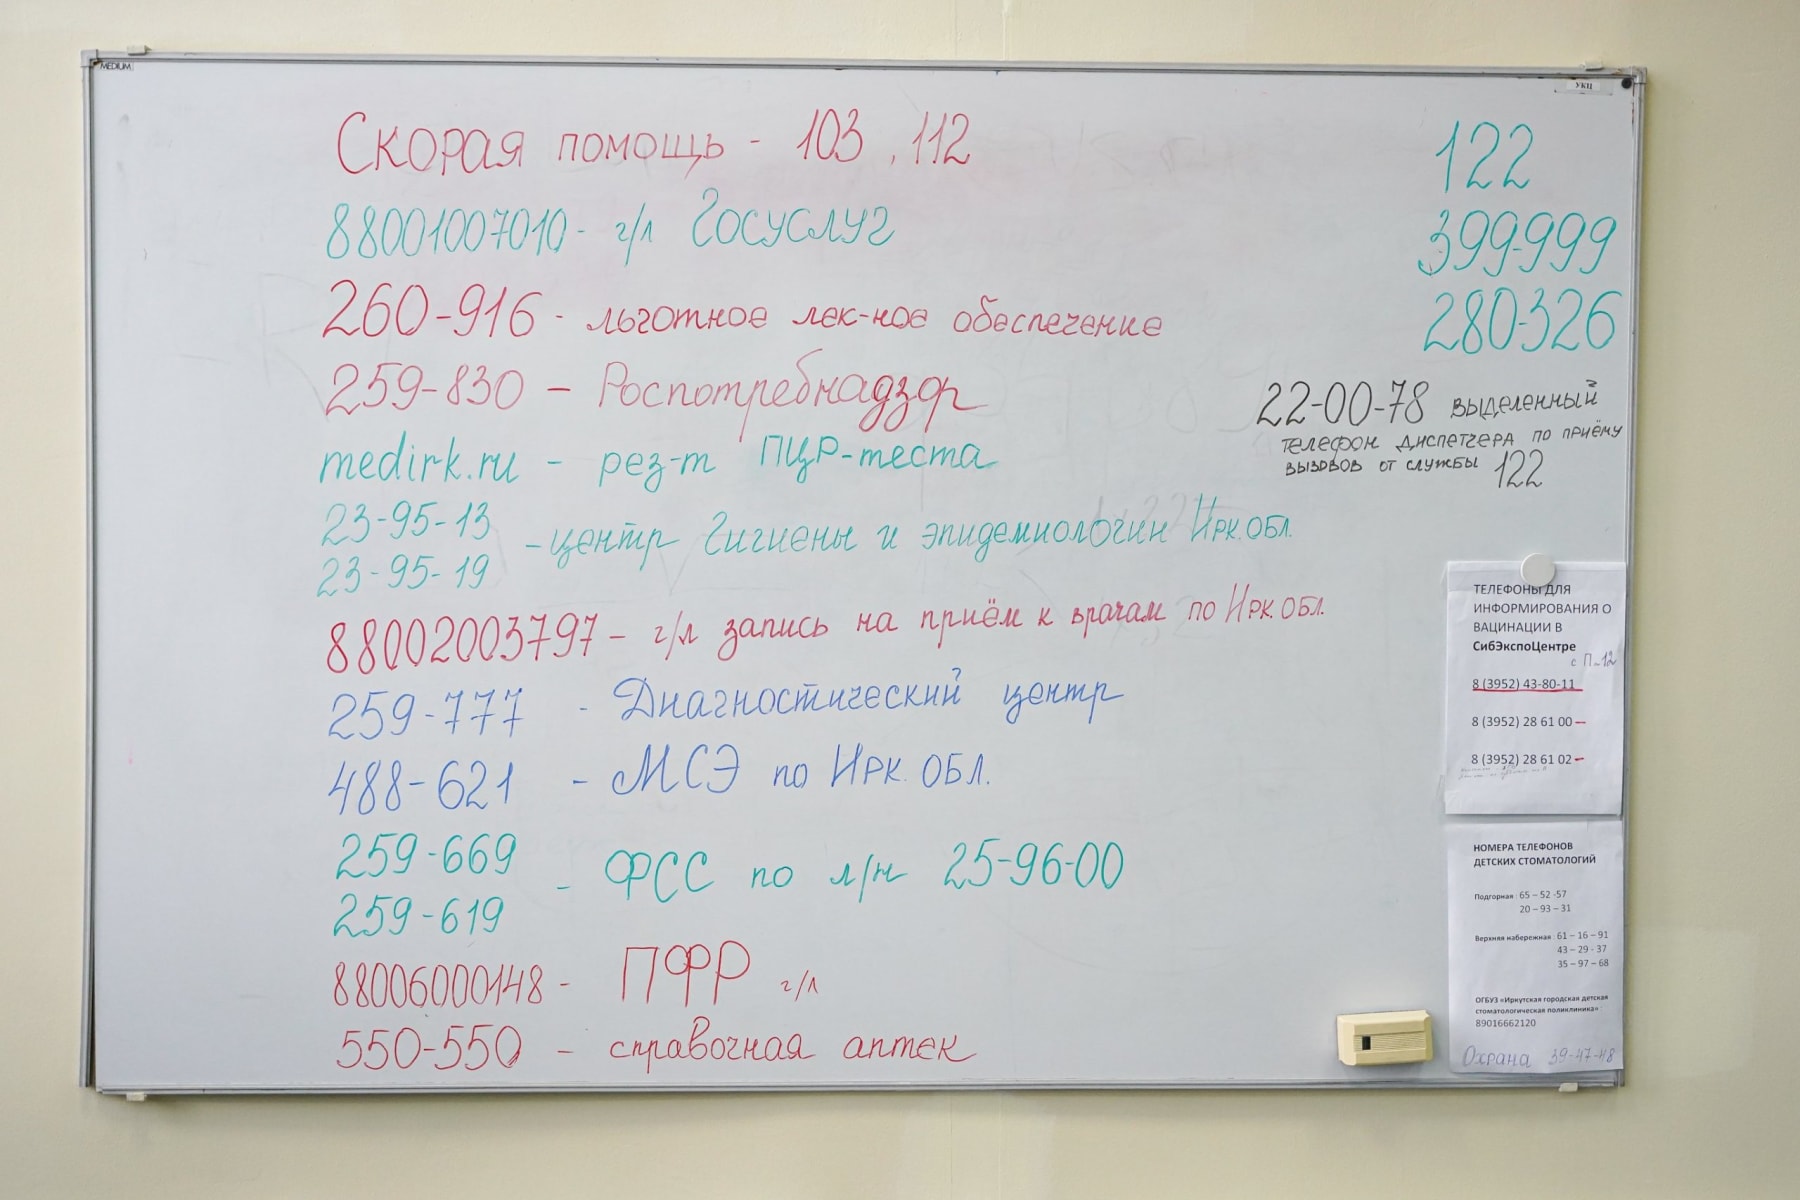 MEDIUM
УКЦ
Скорая помощь - 103, 112
88001007010 - г/л Госуслуг
260-916 - льготное лек-ное обеспечение
259-830 - Роспотребнадзор
medirk.ru - рез-т ПЦР-теста
23-95-13
23-95-19
- центр Гигиены и эпидемиологии Ирк. обл.
88002003797 - г/л запись на приём к врачам по Ирк. обл.
259-777 - Диагностический центр
488-621 - МСЭ по Ирк. обл.
259-669
259-619
- ФСС по л/н 25-96-00
88006000148 - ПФР г/л
550-550 - справочная аптек
122
399-999
280-326
22-00-78 выделенный
телефон диспетчера по приёму
вызовов от службы 122
ТЕЛЕФОНЫ ДЛЯ
ИНФОРМИРОВАНИЯ О
ВАЦИНАЦИИ В
СибЭкспоЦентре
с П-12
8 (3952) 43-80-11
8 (3952) 28 61 00
8 (3952) 28 61 02
НОМЕРА ТЕЛЕФОНОВ
ДЕТСКИХ СТОМАТОЛОГИЙ
Подгорная 65 – 52 -57
20 – 93 – 31
Верхняя набережная 61 – 16 – 91
43 – 29 - 37
35 – 97 – 68
ОГБУЗ «Иркутская городская детская
стоматологическая поликлиника»:
89016662120
Охрана 39-47-48